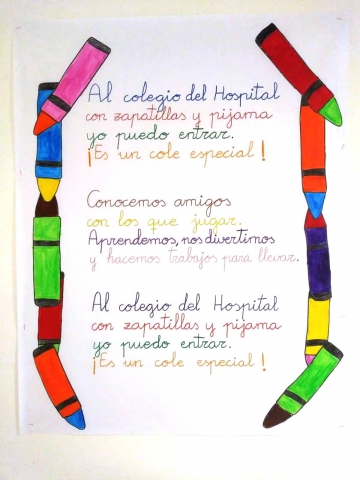 Al colegio del Hospital
con zapatillas y pijama
yo puedo entrar.
¡Es un cole especial!
Conocemos amigos
con los que jugar.
Aprendemos, nos divertimos
y hacemos trabajos para llevar.
Al colegio del Hospital
con zapatillas y pijama
yo puedo entrar.
¡Es un cole especial!